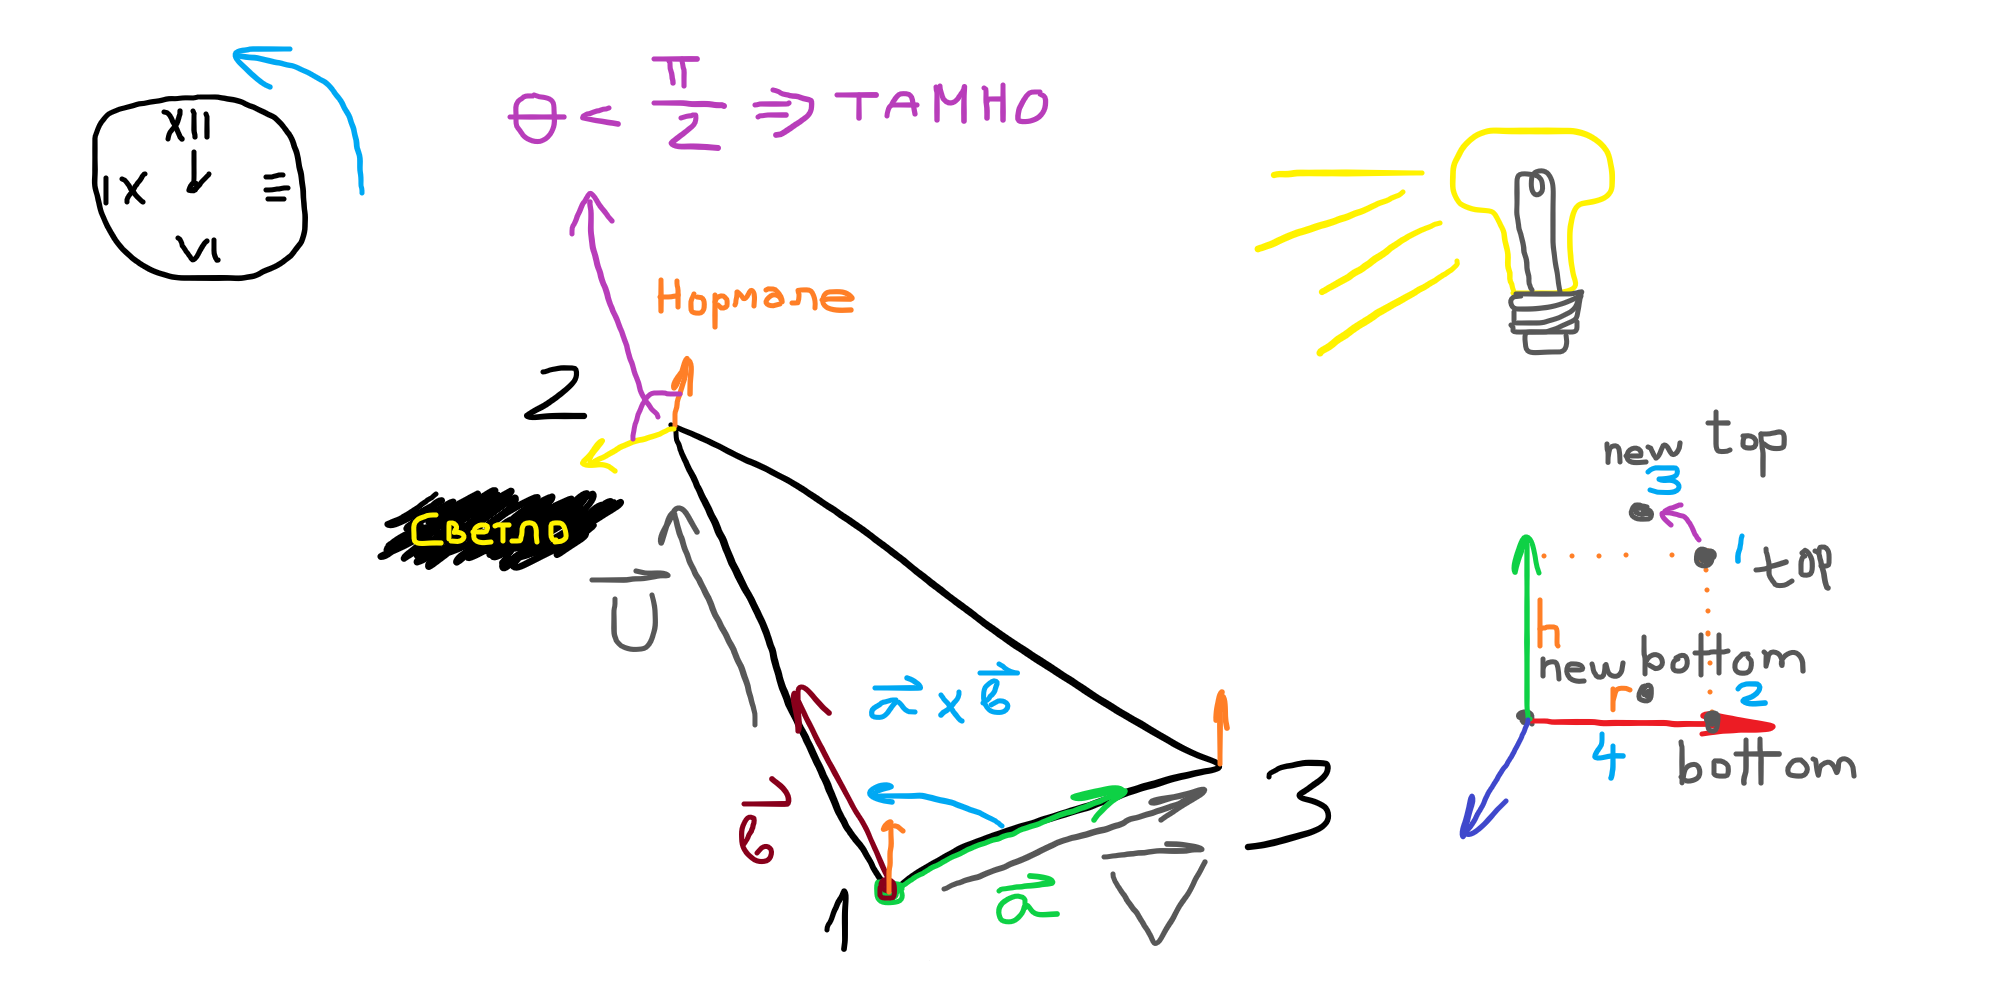 XII
IX III
VI
θ < π/2 ⇒ ТАМНО
Нормале
2
Светло
U
a x в
в
1
a
V
3
new top
3
1 top
h
new bottom
r 2
4
bottom